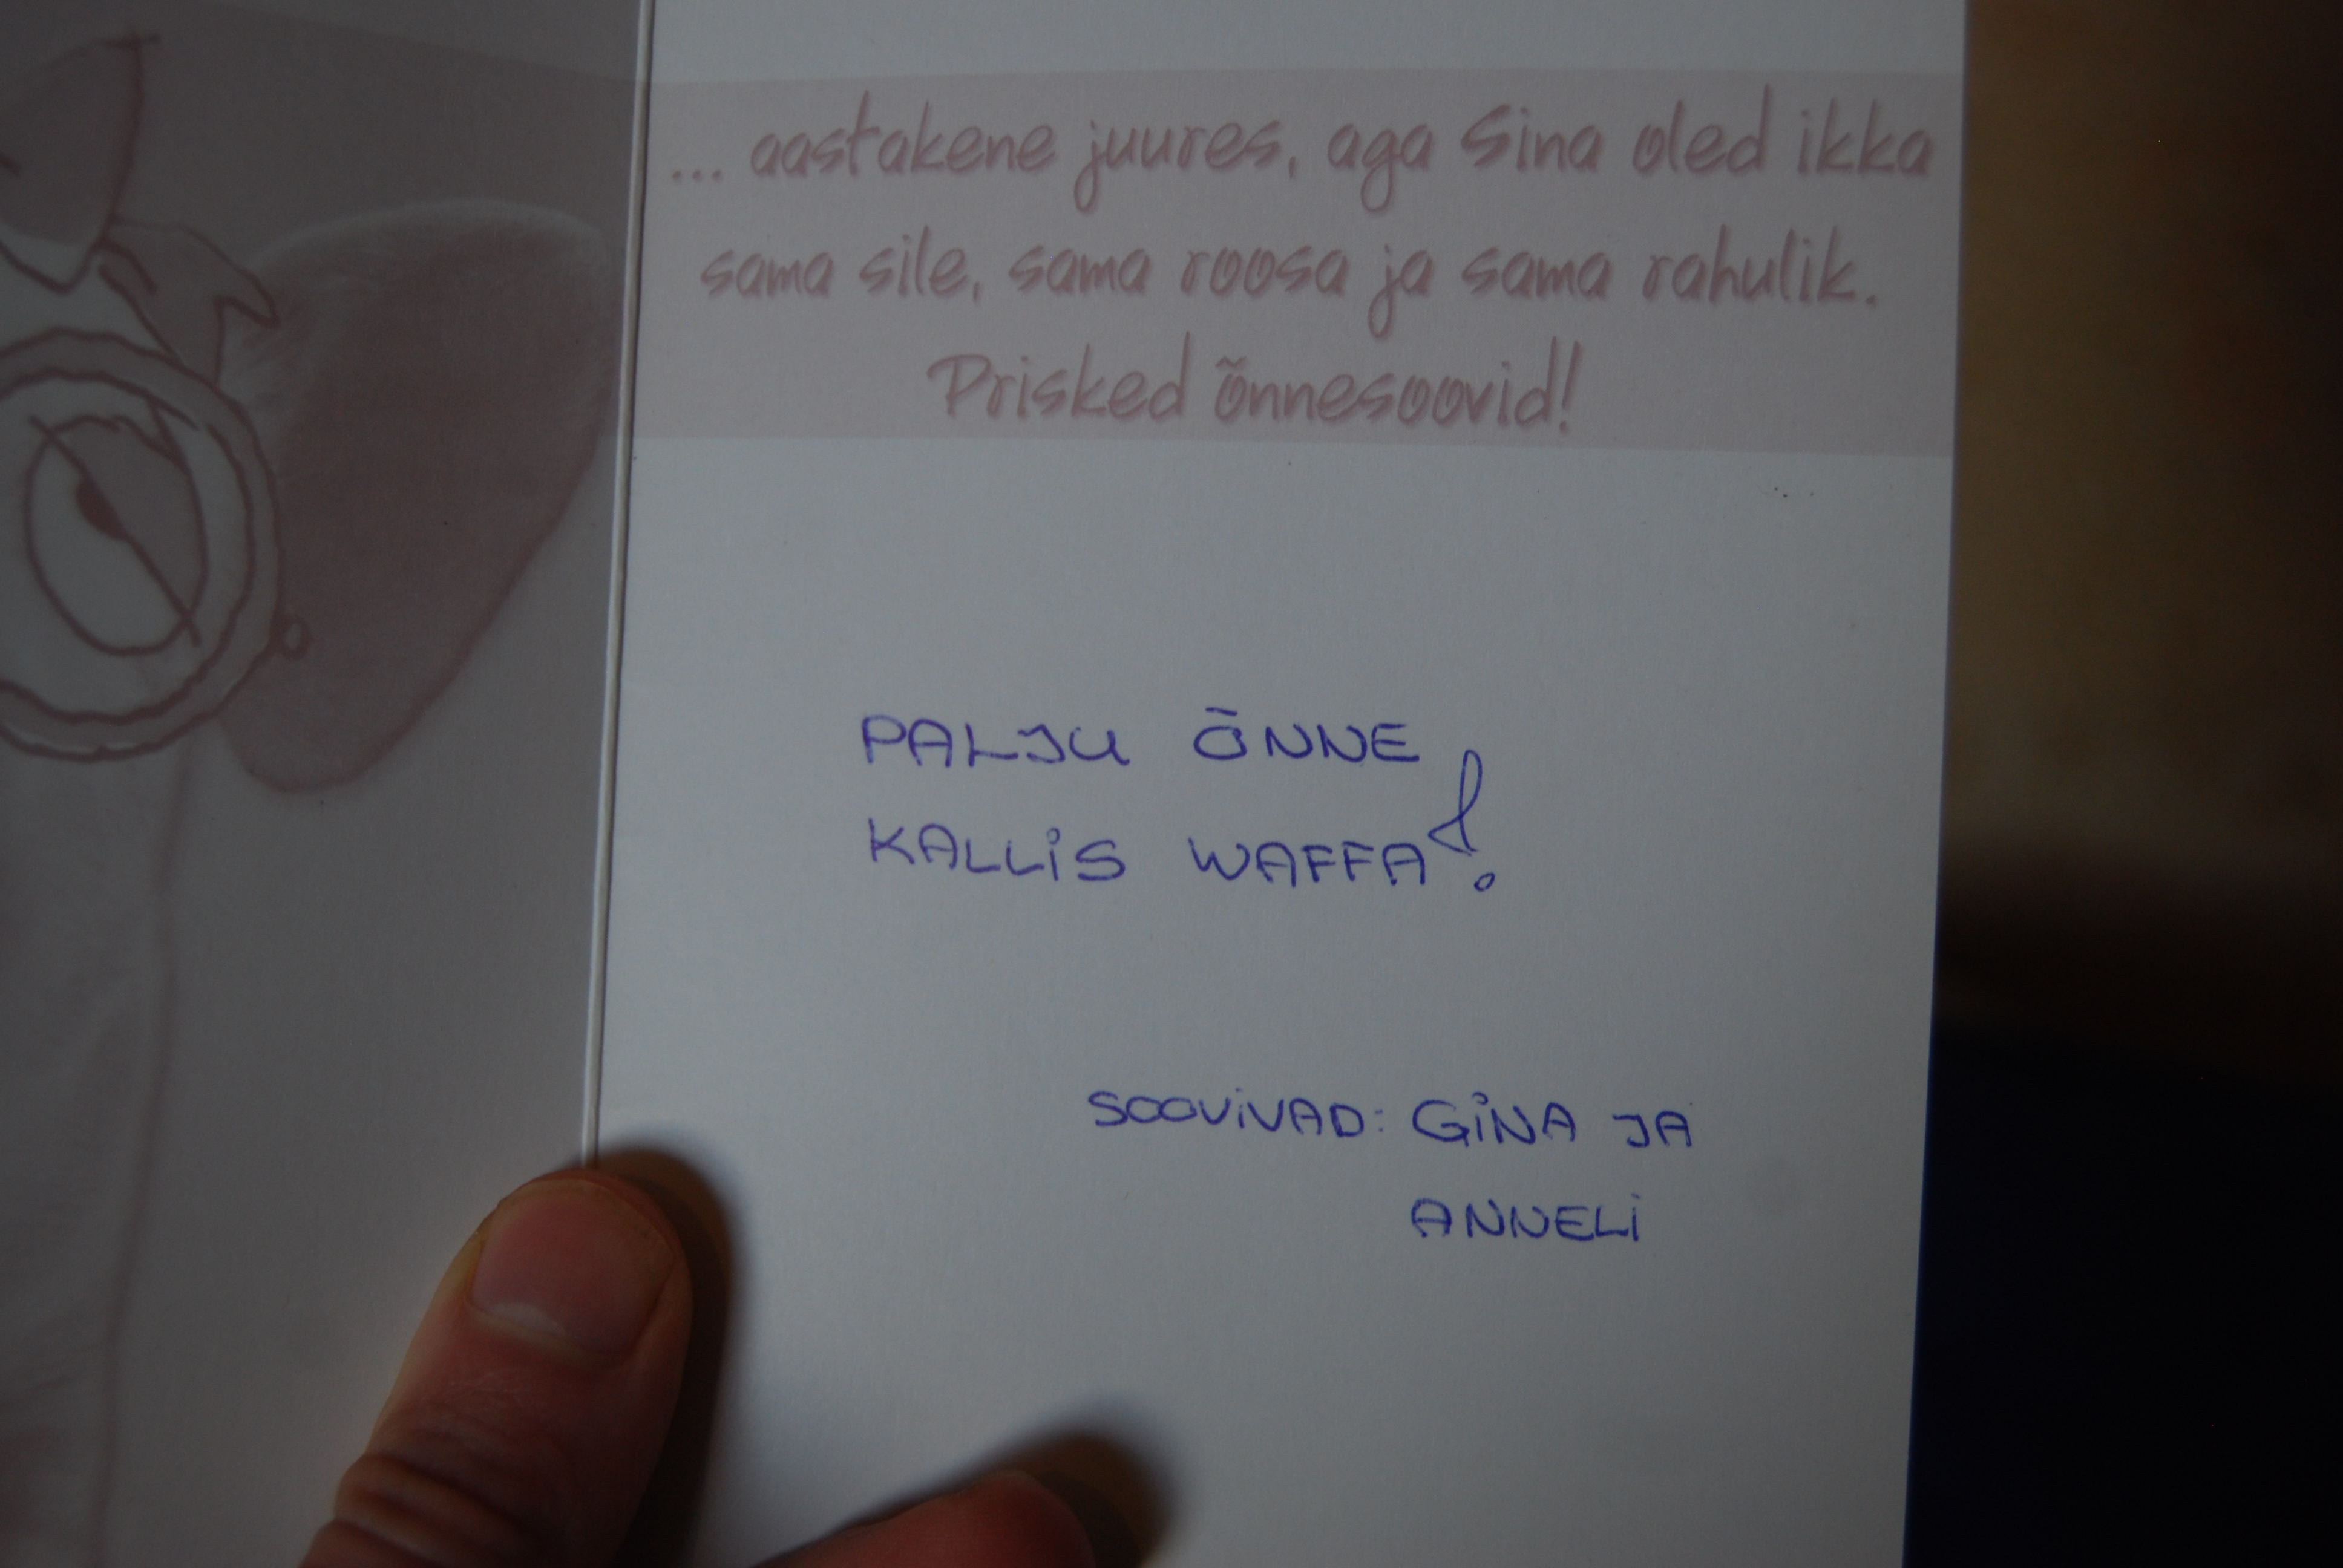 ... aastakene juures, aga Sina oled ikka
sama sile, sama roosa ja sama rahulik.
Prisked õnnesoovid!
PALJU ÕNNE
KALLIS WAFFA!
SOOVIVAD: GINA JA
ANNELI